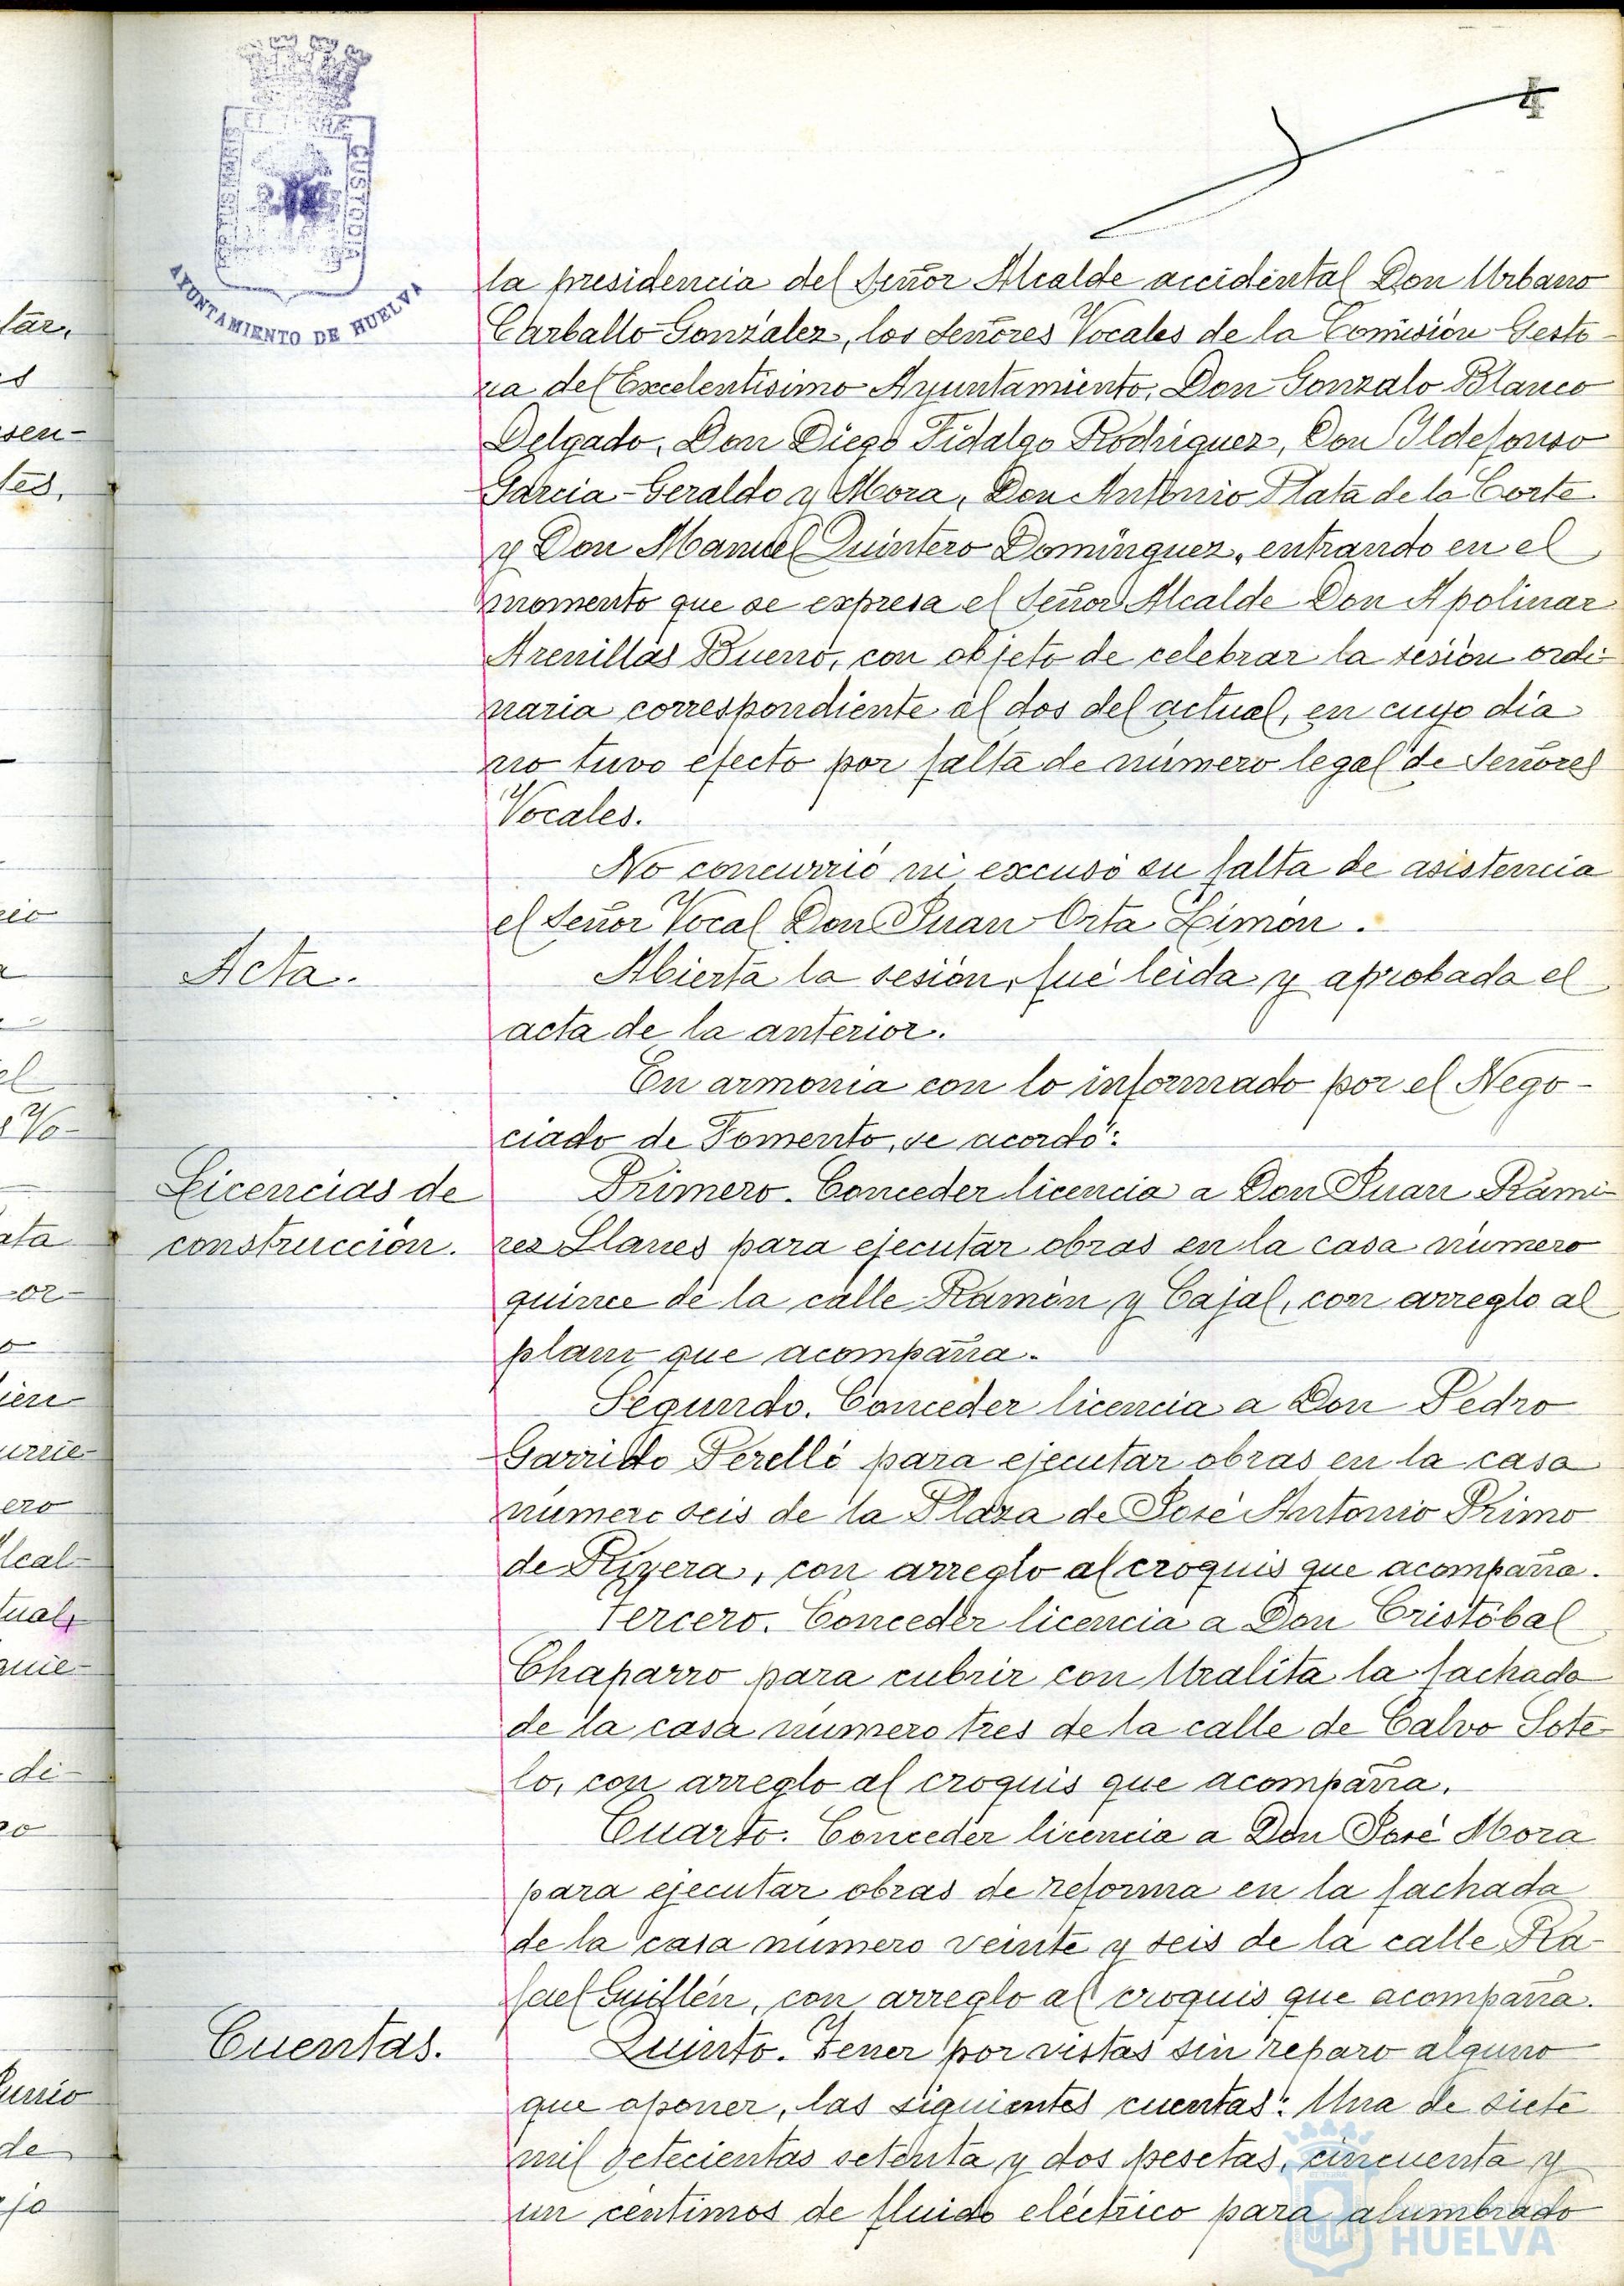 4
AYUNTAMIENTO DE HUELVA
CUSTODIA
la presidencia del Señor Alcalde accidental Don Urbano
Carballo González, los Señores Vocales de la Comisión Gesto-
ra del Excelentísimo Ayuntamiento, Don Gonzalo Blanco
Delgado, Don Diego Fidalgo Rodríguez, Don Ildefonso
García-Geraldo y Mora, Don Antonio Plata de la Corte
y Don Manuel Quintero Domínguez, entrando en el
momento que se expresa el Señor Alcalde Don Apolinar
Arenillas Bueno, con objeto de celebrar la sesión ordi-
naria correspondiente al dos del actual, en cuyo día
no tuvo efecto por falta de número legal de Señores
Vocales.
No concurrió ni excusó su falta de asistencia
el Señor Vocal Don Juan Orta Limón.
Acta.
Abierta la sesión, fué leida y aprobada el
acta de la anterior.
En armonía con lo informado por el Nego-
ciado de Fomento, se acordó:
Licencias de
construcción.
Primero. Conceder licencia a Don Juan Rami-
rez Llanes para ejecutar obras en la casa número
quince de la calle Ramón y Cajal, con arreglo al
plano que acompaña.
Segundo. Conceder licencia a Don Pedro
Garrido Perelló para ejecutar obras en la casa
número seis de la Plaza de José Antonio Primo
de Rivera, con arreglo al croquis que acompaña.
Tercero. Conceder licencia a Don Cristóbal
Chaparro para cubrir con Uralita la fachada
de la casa número tres de la calle de Calvo Sote-
lo, con arreglo al croquis que acompaña.
Cuarto. Conceder licencia a Don José Mora
para ejecutar obras de reforma en la fachada
de la casa número veinte y seis de la calle Ra-
fael Guillén, con arreglo al croquis que acompaña.
Cuentas.
Quinto. Tener por vistas sin reparo alguno
que oponer, las siguientes cuentas: Una de siete
mil setecientas setenta y dos pesetas, cincuenta y
un céntimos de fluido eléctrico para alumbrado
HUELVA